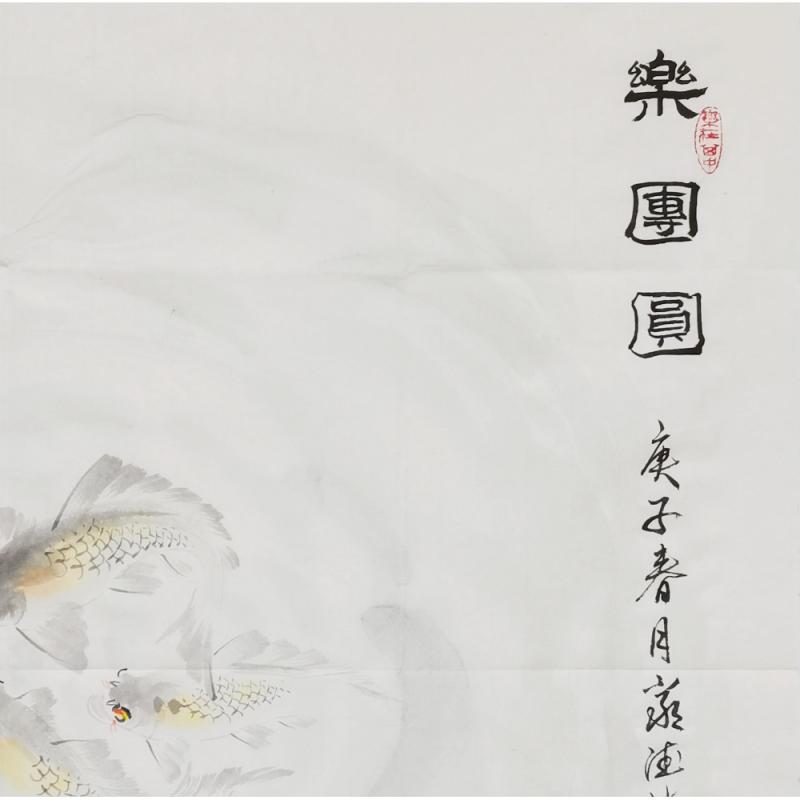 樂團圓
庚子春月